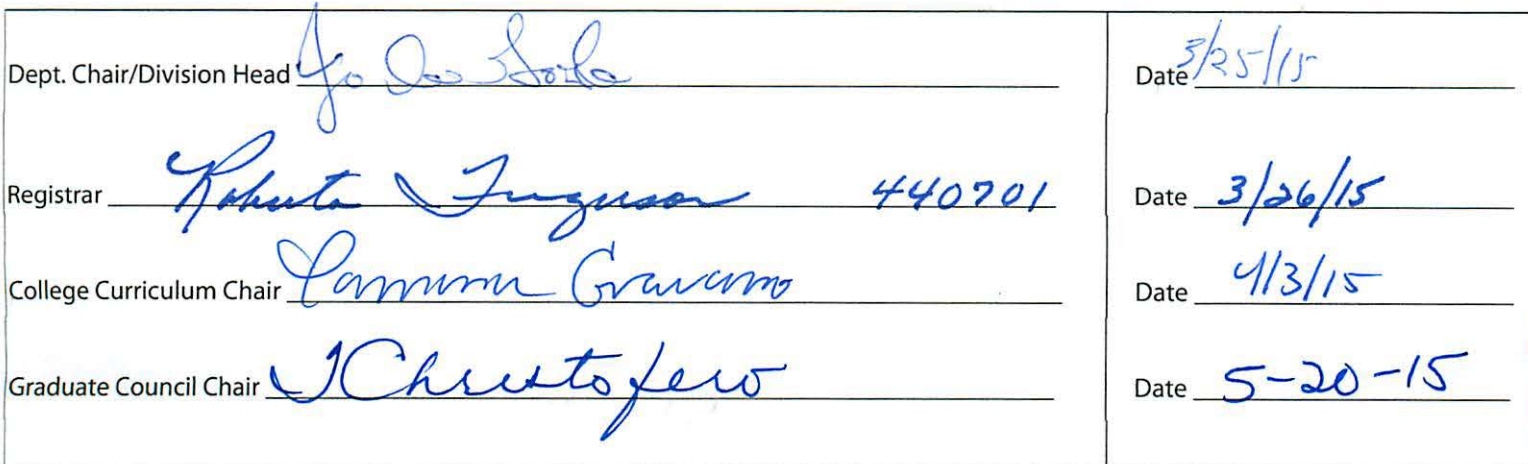 Dept. Chair/Division Head Date 3/25/15
Registrar Roberta Ferguson 440701 Date 3/26/15
College Curriculum Chair Date 4/3/15
Graduate Council Chair TChristofero Date 5-20-15